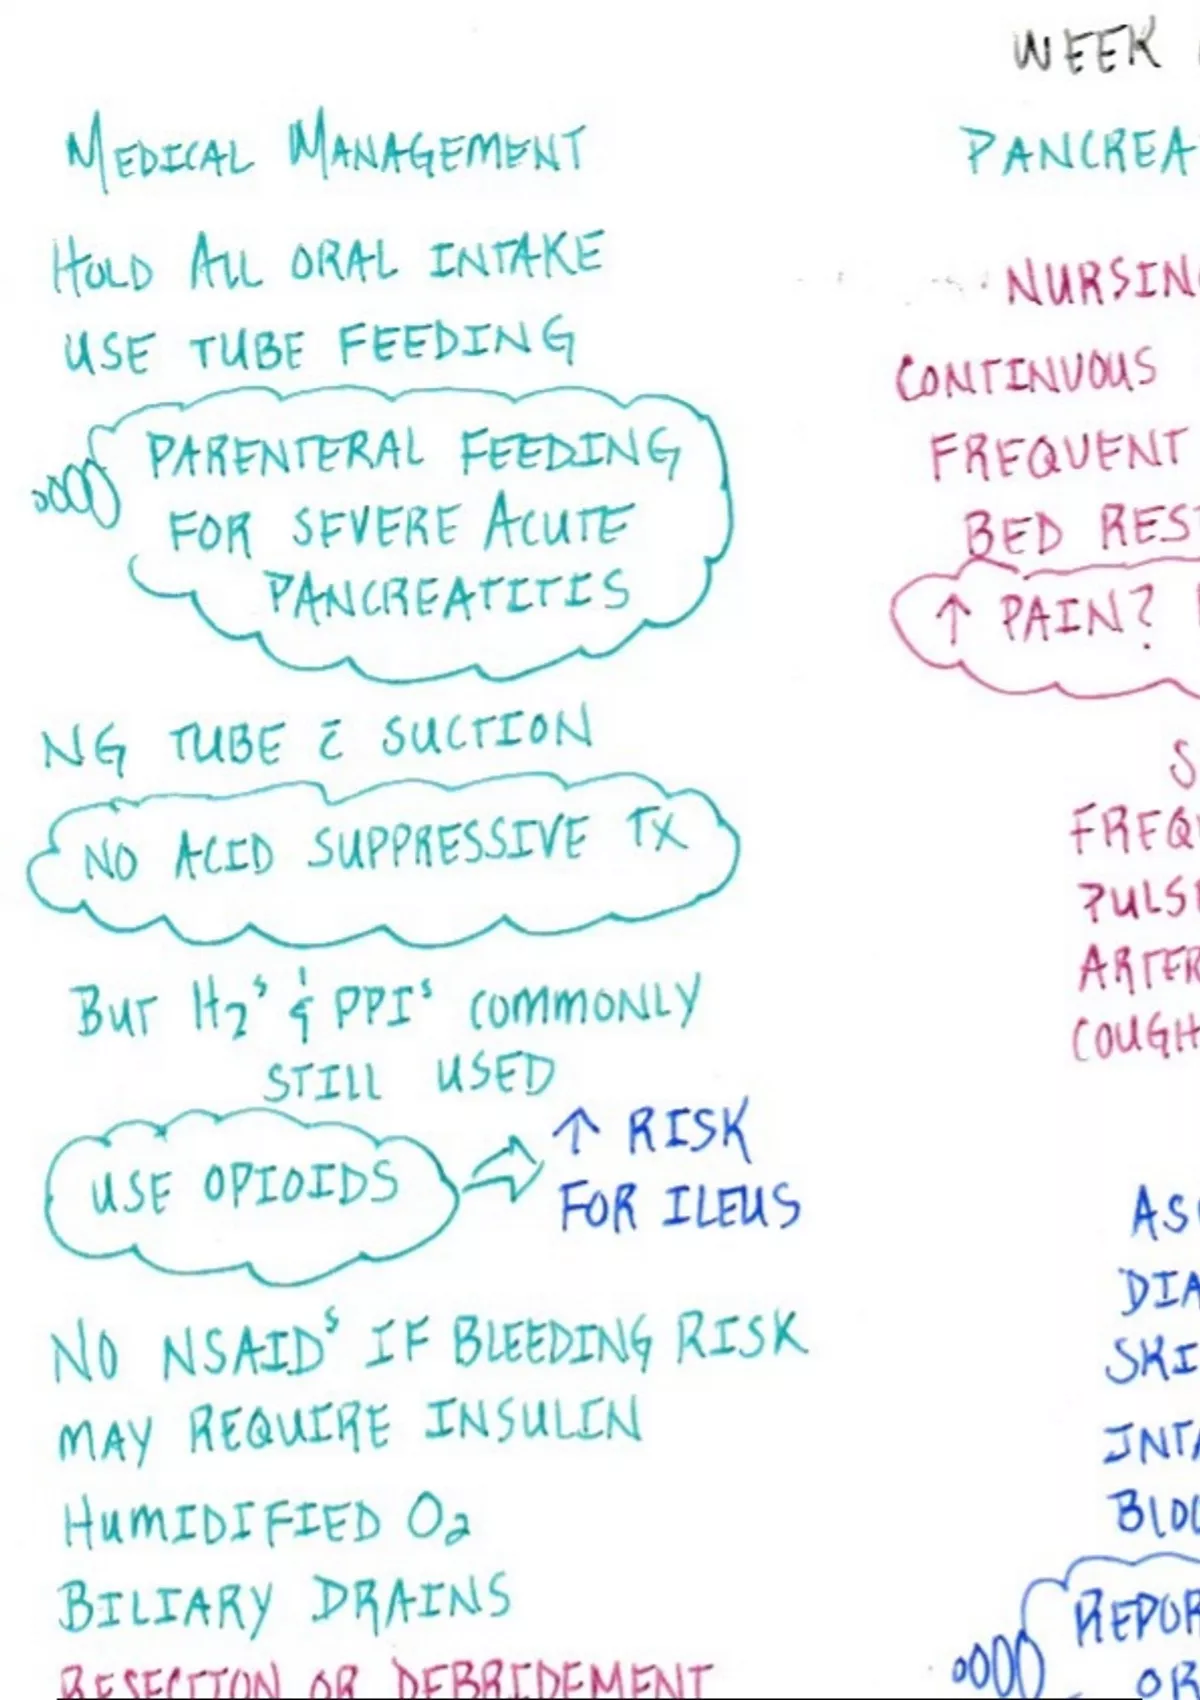 WEEK
MEDICAL MANAGEMENT
HOLD ALL ORAL INTAKE
USE TUBE FEEDING
PARENTERAL FEEDING
FOR SEVERE ACUTE
PANCREATITIS
NG TUBE c̄ SUCTION
NO ACID SUPPRESSIVE TX
BUT H2's & PPI's COMMONLY
STILL USED
USE OPIOIDS
↑ RISK
FOR ILEUS
NO NSAID's IF BLEEDING RISK
MAY REQUIRE INSULIN
HUMIDIFIED O2
BILIARY DRAINS
RESECTION OR DEBRIDEMENT
PANCREA
NURSIN
CONTINUOUS
FREQUENT
BED RES
↑ PAIN?
S
FREQ
PULS
ARTER
COUGH
AS
DIA
SKI
INTA
BLO
REPOR
OR